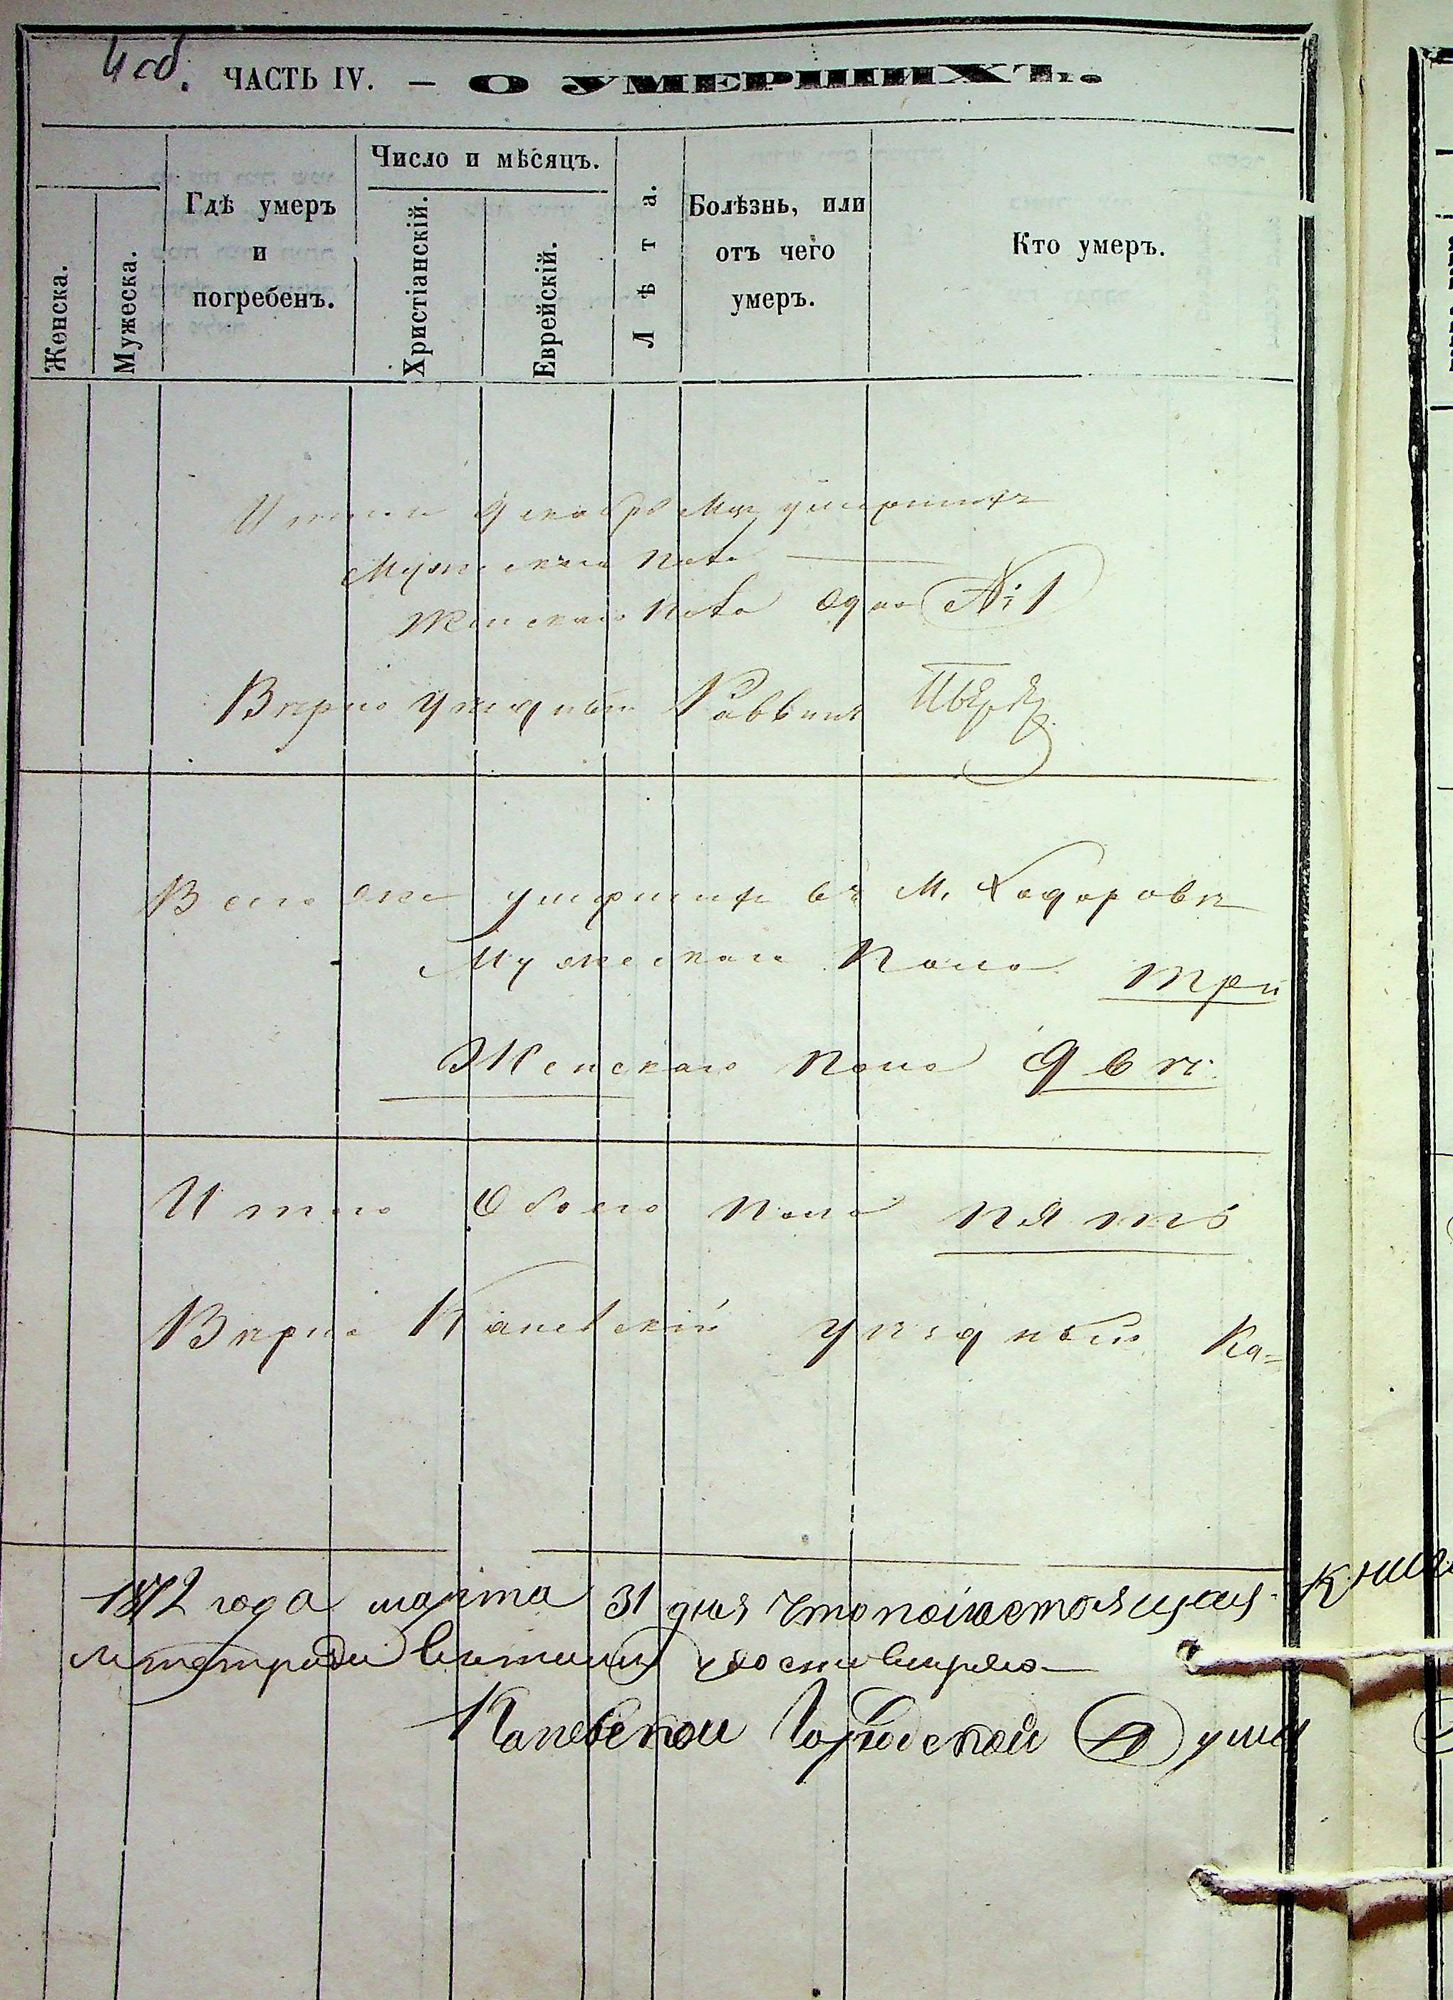 4 об.
ЧАСТЬ IV. — О УМЕРШИХЪ.
Женска.
Мужеска.
Гдѣ умеръ
и
погребенъ.
Число и мѣсяцъ.
Христіанскій.
Еврейскій.
Лѣта.
Болѣзнь, или
отъ чего
умеръ.
Кто умеръ.
Итого Декабрѣ Мцѣ умершихъ
Мужескаго пола —
Женскаго пола одна №1
Вѣрно Уѣздный Раввинъ
Всего же умершихъ въ М. Ходоровѣ
Мужескаго Пола три
Женскаго Пола двѣ
Итого Обоего пола пять
Вѣрно Каневскій уѣздный Ка=
1872 года марта 31 дня что по настоящая книга
удостовѣряю
Каневской Городской Думы